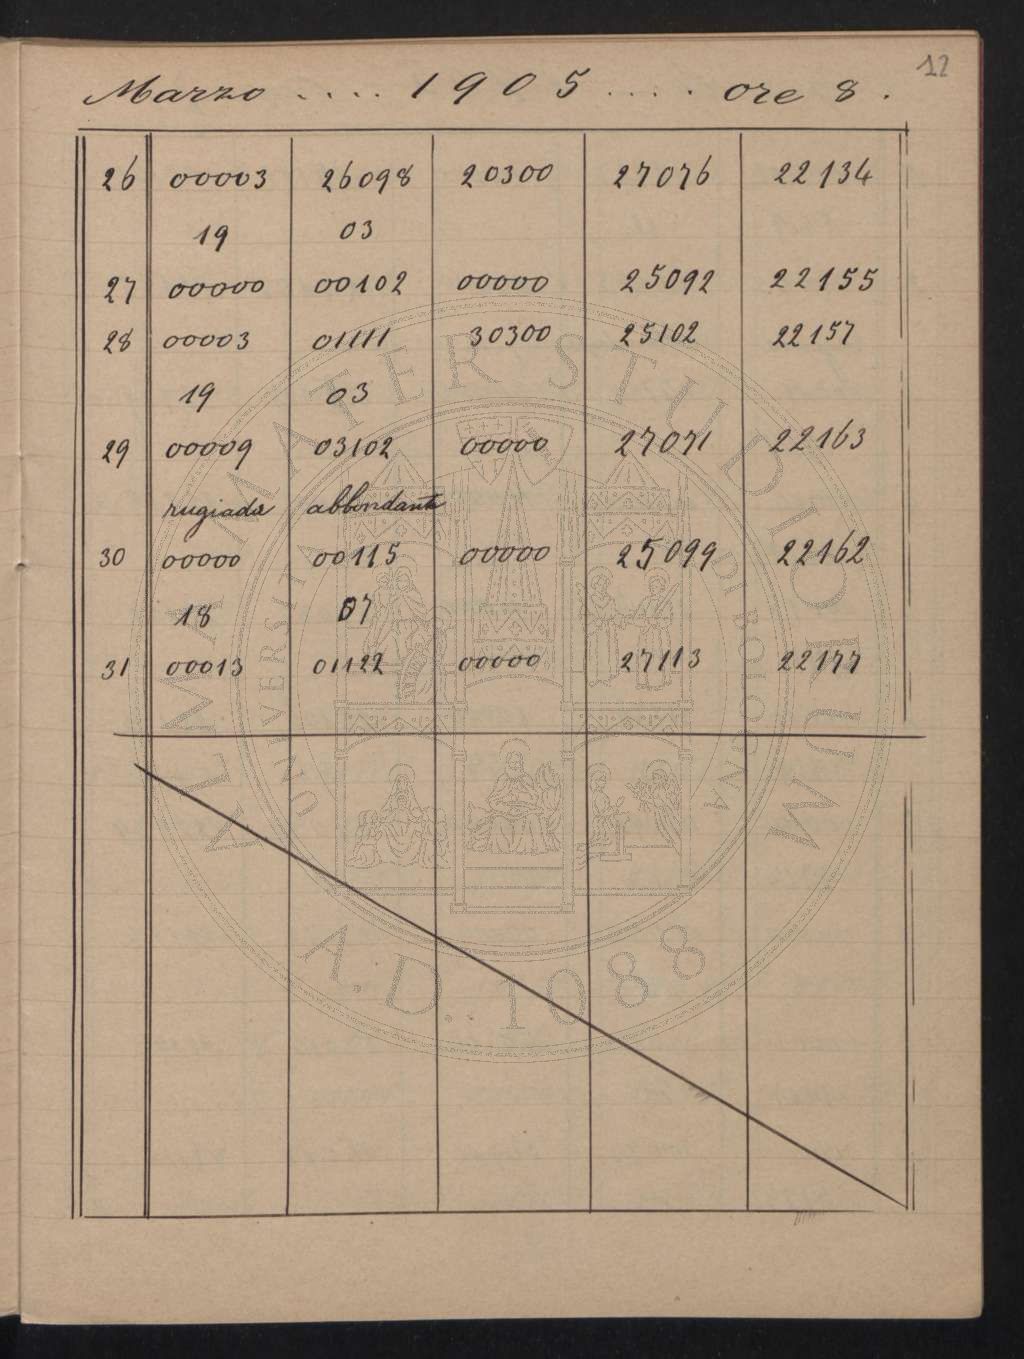 12
Marzo .... 1905 .... ore 8.
26 00003 26098 20300 27076 22134
19 03
27 00000 00102 00000 25092 22155
28 00003 01111 30300 25102 22157
19 03
29 00009 03102 00000 27071 22163
rugiada abbondante
30 00000 00115 00000 25099 22162
18 07
31 00013 01122 00000 27113 22177
ALMA MATER STUDIORUM
UNIVERSITÀ DI BOLOGNA
A.D. 1088